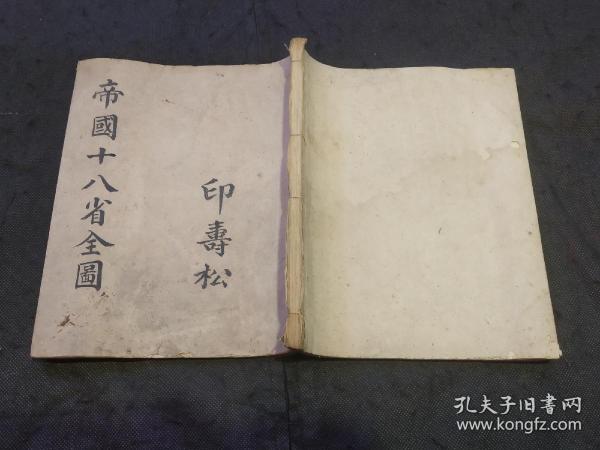 帝國十八省全圖
印壽松
孔夫子旧書网
www.kongfz.com